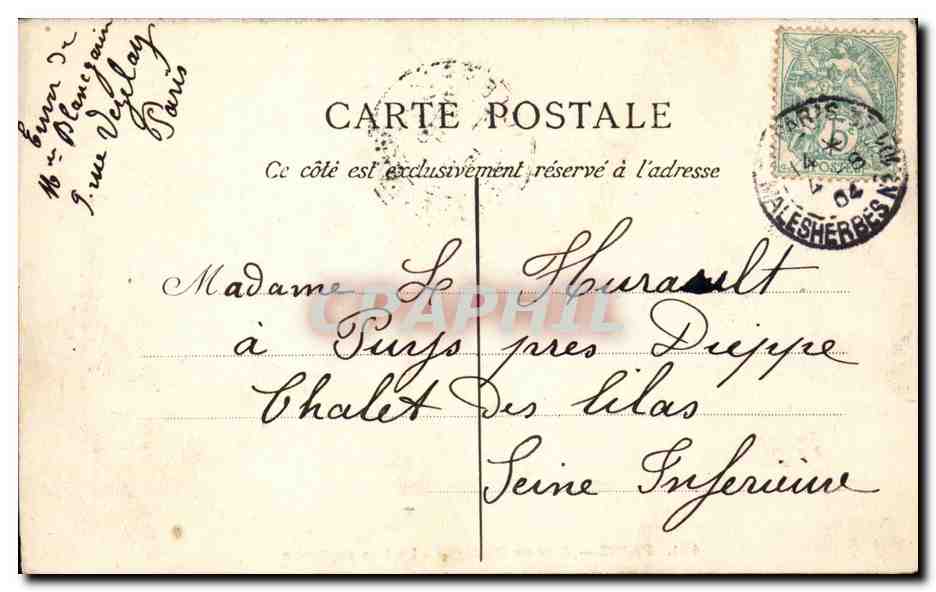 Envoi de
Mme Blancgarin
9. rue Vezelay
Paris
CARTE POSTALE
Ce côté est exclusivement réservé à l'adresse
Madame L. Hurault
à Puys près Dieppe
Chalet des lilas
Seine Inferieure
CPAPHIL
5
POSTES
PARIS
MALESHERBES
04